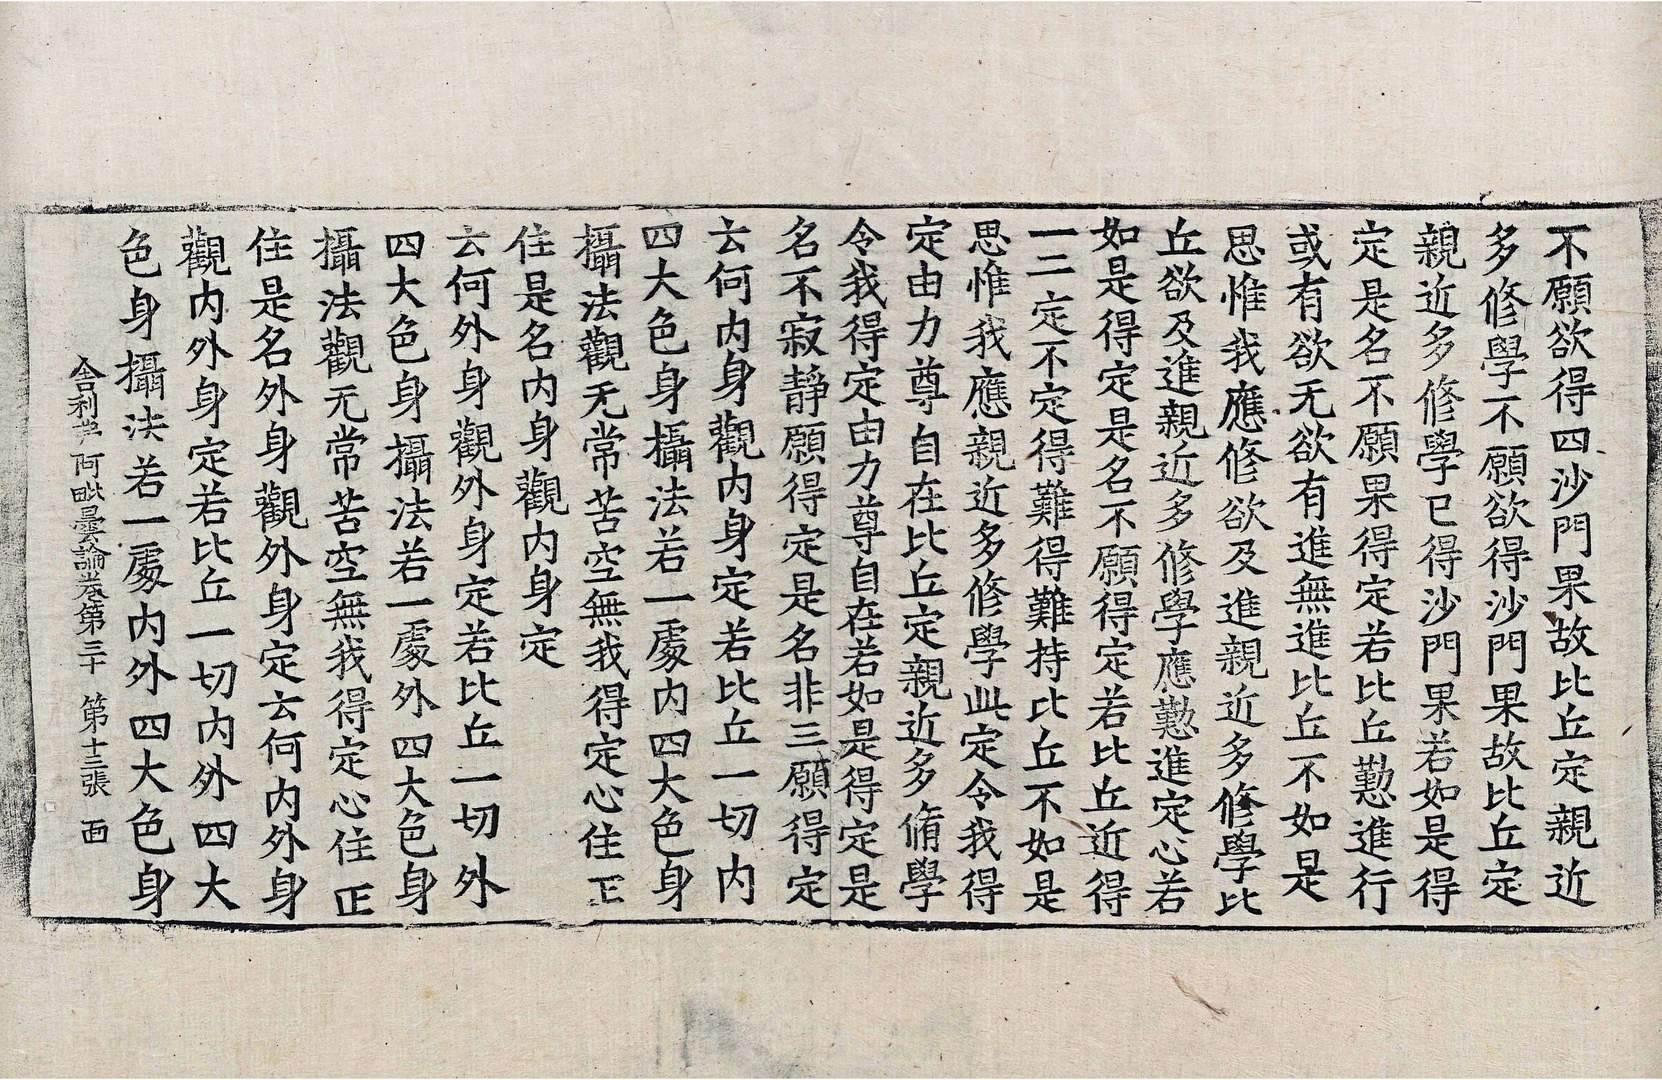 不願欲得四沙門果故比丘定親近
多修學不願欲得沙門果故比丘定
親近多修學已得沙門果若如是得
定是名不願果得定若比丘懃進行
或有欲无欲有進無進比丘不如是
思惟我應修欲及進親近多修學比
丘欲及進親近多修學應懃進定心若
如是得定是名不願得定若比丘近得
一二定不定得難得難持比丘不如是
思惟我應親近多修學此定令我得
定由力尊自在比丘定親近多脩學
令我得定由力尊自在若如是得定是
名不寂靜願得定是名非三願得定
云何内身觀内身定若比丘一切内
四大色身攝法若一處内四大色身
攝法觀无常苦空無我得定心住正
住是名内身觀内身定
云何外身觀外身定若比丘一切外
四大色身攝法若一處外四大色身
攝法觀无常苦空無我得定心住正
住是名外身觀外身定云何内外身
觀内外身定若比丘一切内外四大
色身攝法若一處内外四大色身
舍利弗阿毗曇論卷第三十 第十三張 面